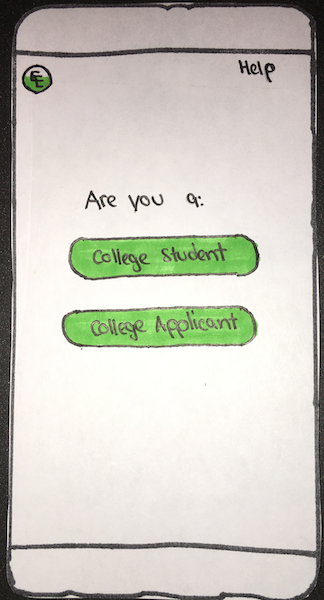 EE
Help
Are you a:
College Student
College Applicant